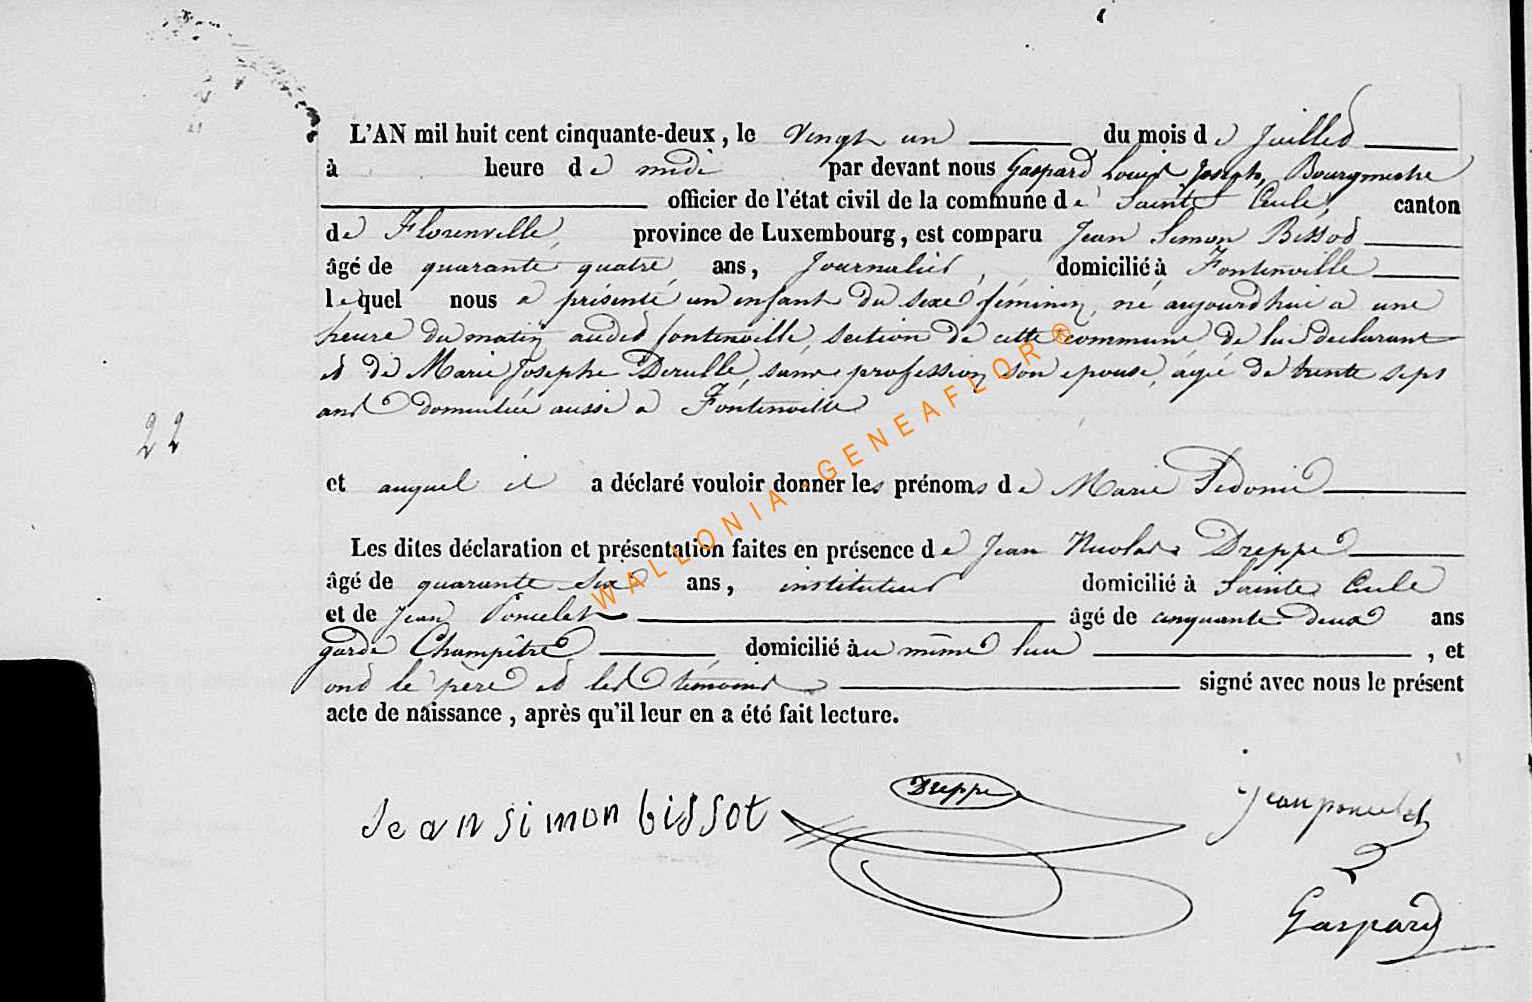 L'AN mil huit cent cinquante-deux, le vingt un du mois de Juillet
à heure de midi par devant nous Gaspard Louis Joseph, Bourgmestre
officier de l'état civil de la commune de Sainte Cécile, canton
de Florenville, province de Luxembourg, est comparu Jean Simon Bissot
âgé de quarante quatre ans, Journalier, domicilié à Fontenoille
lequel nous a présenté un enfant du sexe féminin, né aujourdhui a une
heure du matin audit fontenoille, section de cette commune de lui déclarant
et de Marie Josephe Derulle, sans profession son epouse, agée de trente sept
ans domiciliée aussi a Fontenoille
22
et auquel il a déclaré vouloir donner les prénoms de Marie Sidonie
Les dites déclaration et présentation faites en présence de Jean Nicolas Dreppe
âgé de quarante six ans, instituteur domicilié à Sainte Cécile
et de Jean Poncelet âgé de cinquante deux ans
garde Champêtre domicilié au même lieu , et
ont le père et les témoins signé avec nous le présent
acte de naissance, après qu'il leur en a été fait lecture.
Jean simon bissot Dreppe jean poncelet
Gaspard
WALLONIA-GENEAFLOR®